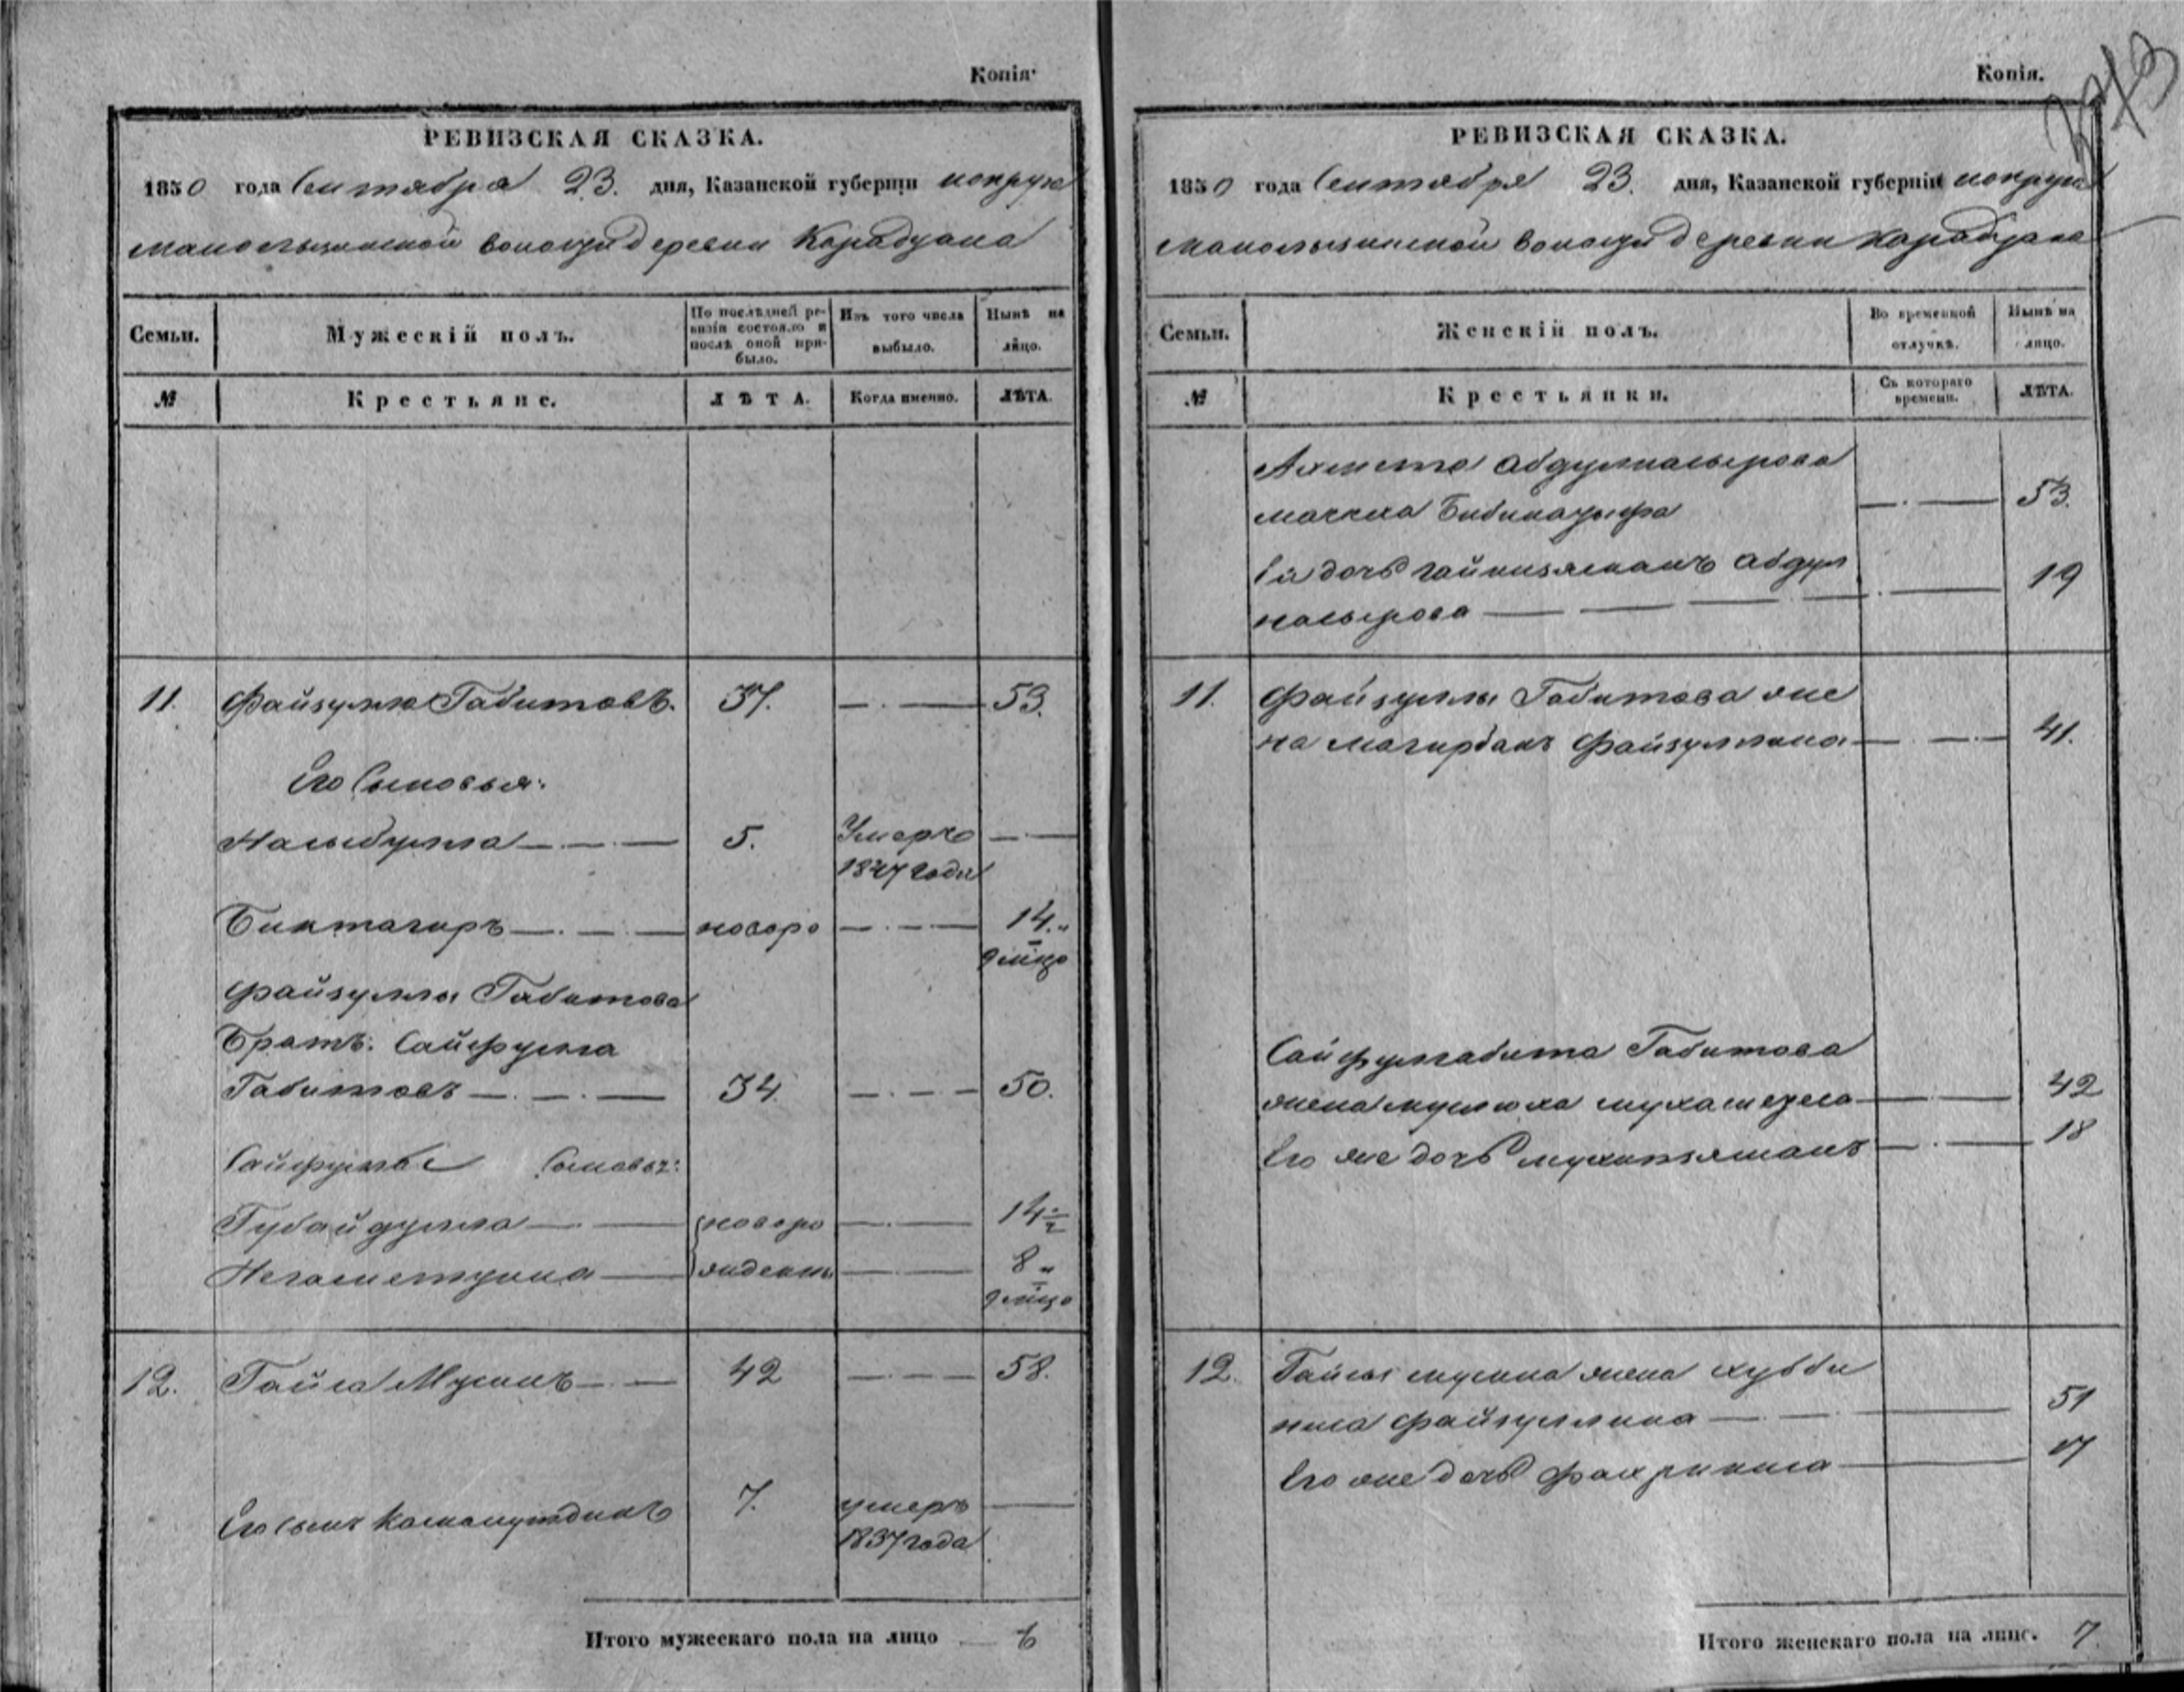 Копія.
РЕВИЗСКАЯ СКАЗКА.
1850 года Сентября 23. дня, Казанской губерніи
волости деревни Карадуана
Семьи.
Мужескій полъ.
По послѣдней ревизіи состояло и послѣ оной прибыло.
Изъ того числа выбыло.
Нынѣ на лицо.
№
Крестьяне.
ЛѢТА.
Когда именно.
ЛѢТА.
11. Файзулла Габитовъ. 37. 53.
Его Сыновья:
Насыбулла 5. Умеръ
1847 года
Биктагиръ новоро 14.
Файзуллы Габитова
Братъ. Сайфулла
Габитовъ 34. 50.
Сайфуллы Сыновья:
Губайдулла новоро 14
Негаметулла жденны 8
12. Гайса Мусинъ 42 58.
Его сынъ Камалутдинъ 7. умеръ
1837 года
Итого мужескаго пола на лицо 6
Копія.
РЕВИЗСКАЯ СКАЗКА.
1850 года Сентября 23. дня, Казанской губерніи
волости деревни Карадуана
Семьи.
Женскій полъ.
Во временной отлучкѣ.
Нынѣ на лицо.
№
Крестьянки.
Съ котораго времени.
ЛѢТА.
Ахмета Абдулнасырова
мачиха 53.
Ея дочь Гайнизяманъ Абдул 19
насырова
11. Файзуллы Габитова же
на Магирбанъ Файзуллина 41.
Габитова
жена 42
Его же дочь 18
12. Гайсы Мусина жена Хубби
ниса Файзуллина 51
Его же дочь Фахриниса 17
Итого женскаго пола на лицо. 7.